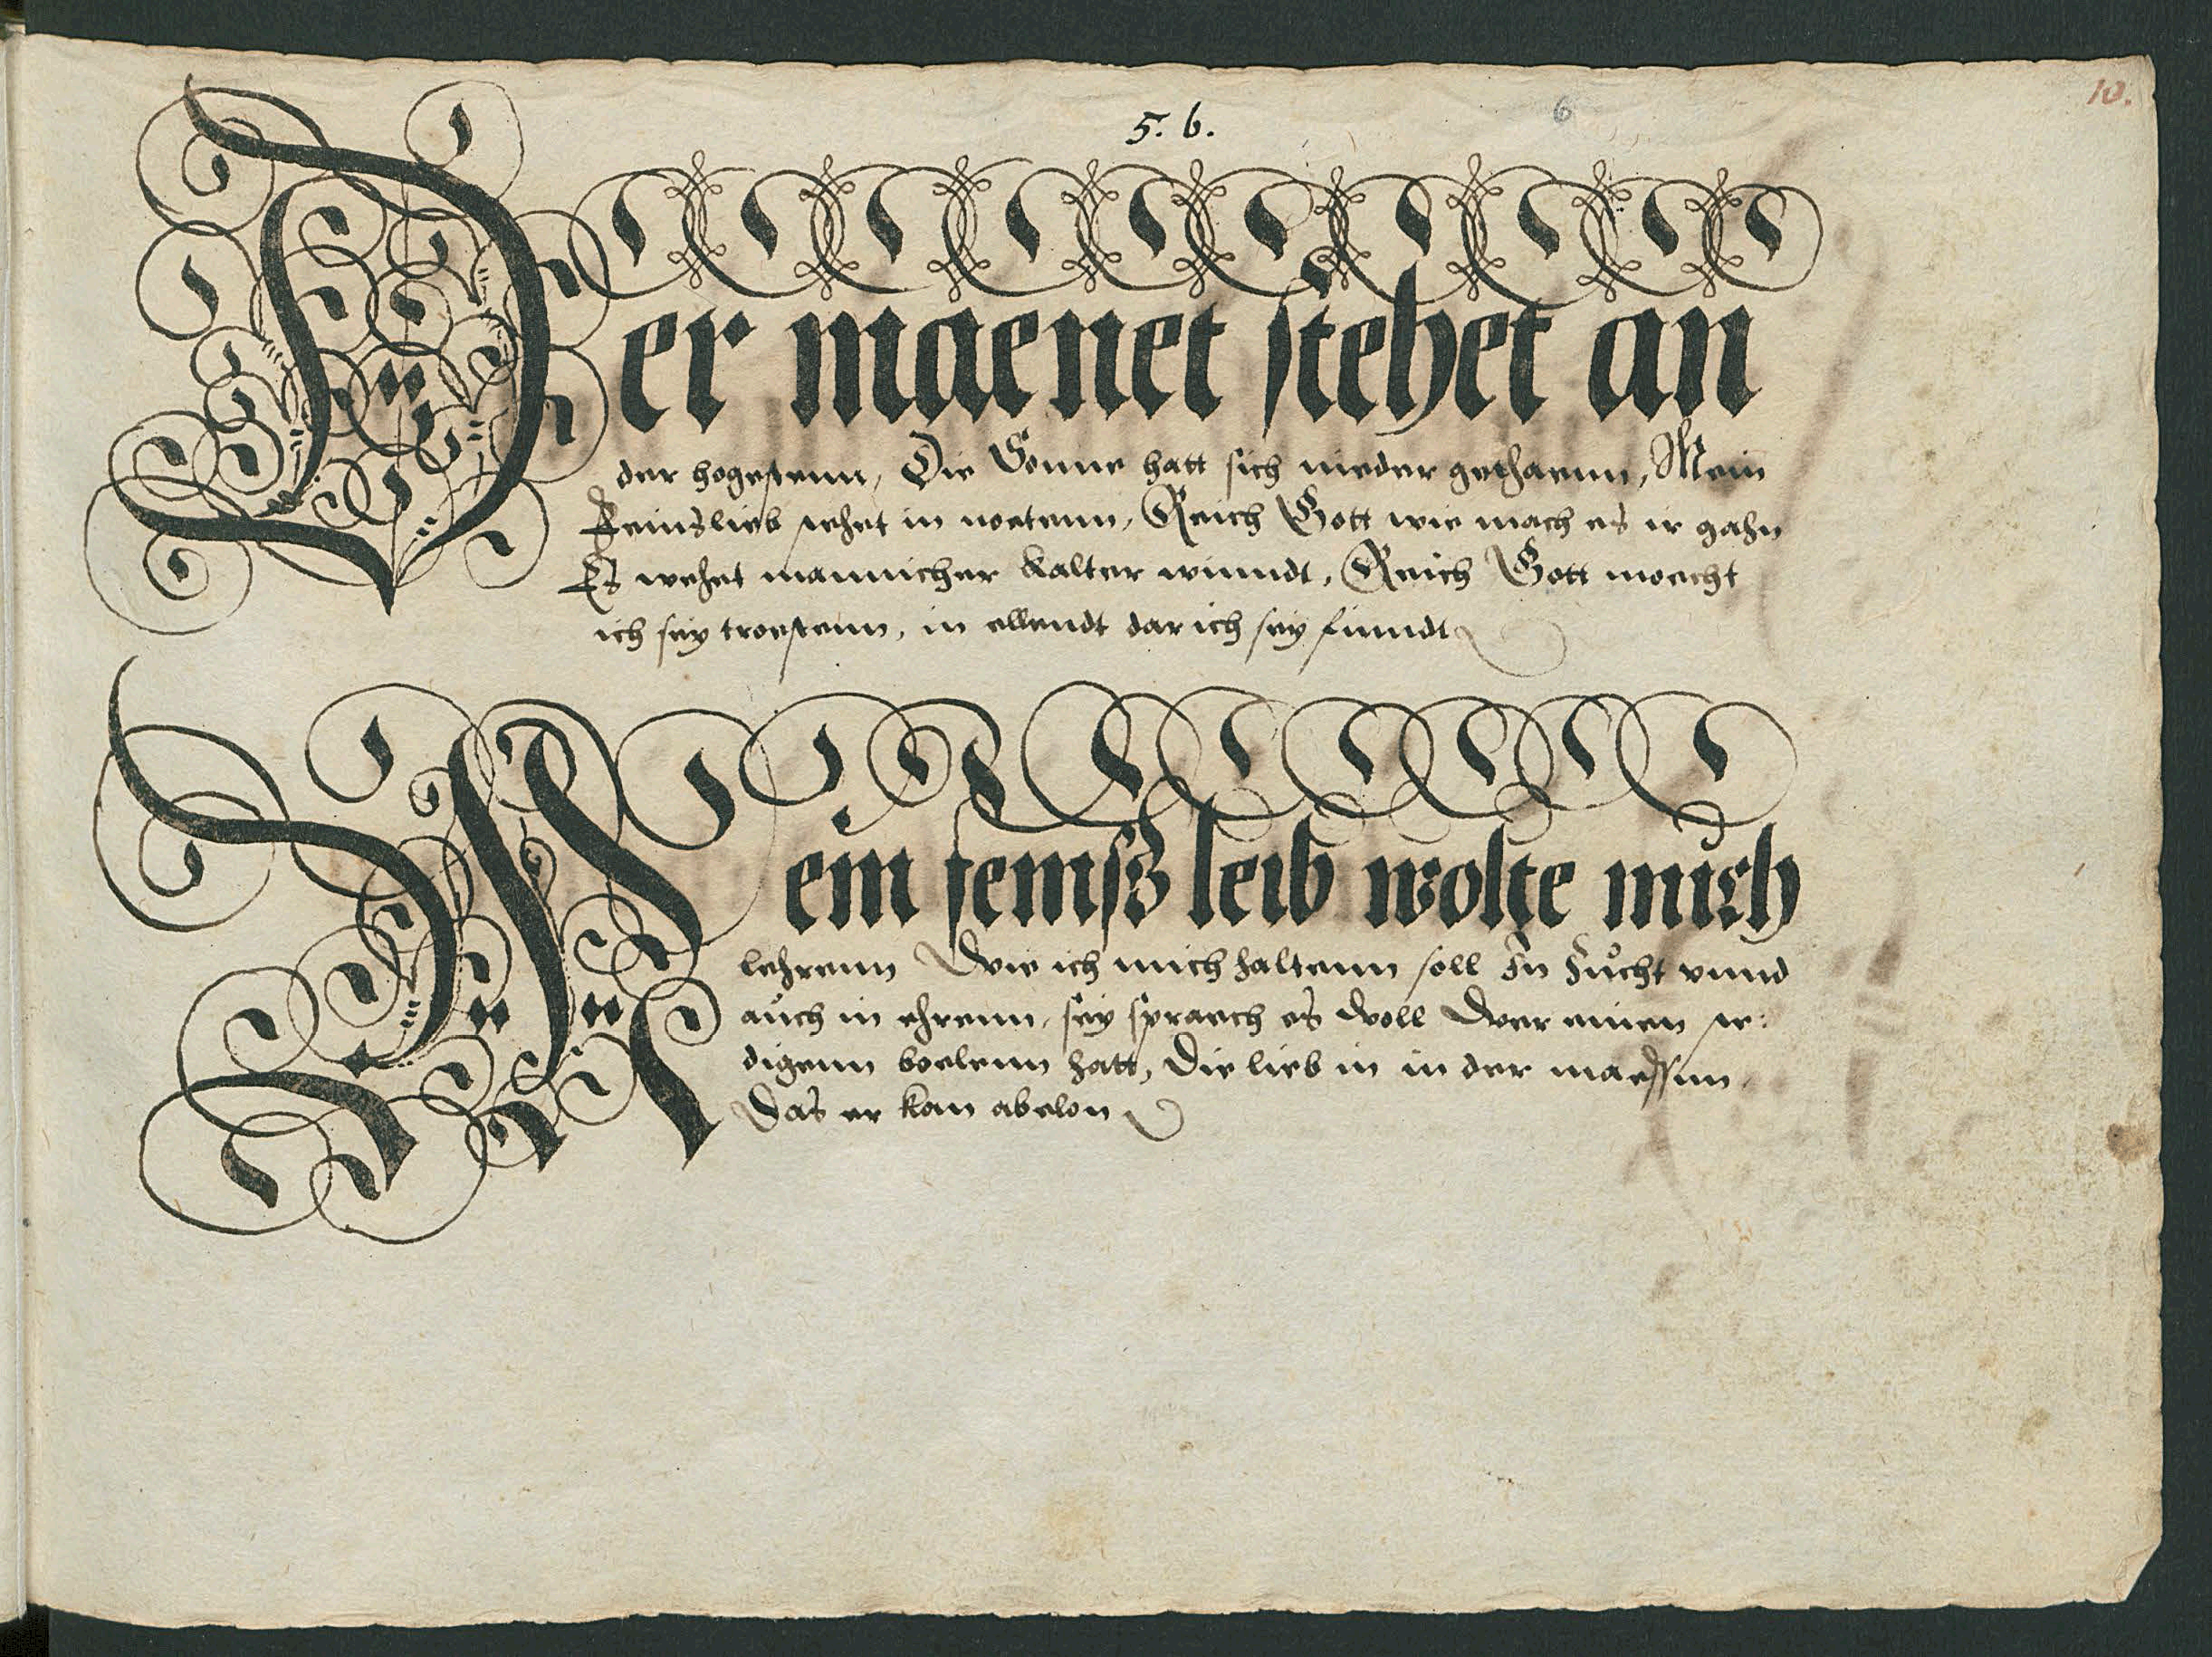 10.
5. 6.
6
Der maenet stehet an
der hogestenn, Die Sonne hatt sich nieder gethaenn, Mein
feinslieb stehet in noetenn, Reich Gott wie mach es ir gahn
Es wehet mannicher kalter winndt, Reich Gott moecht
ich sey troestenn, in ellendt dar ich sey finndt
Mein feinsz leib wolte mich
lehrenn Wie ich mich haltenn soll In zucht vnnd
auch in ehrenn, sey spraech es woll Wer einen ste:
digenn boelenn hatt, Die lieb in in der maessen,
Das er kan abelon